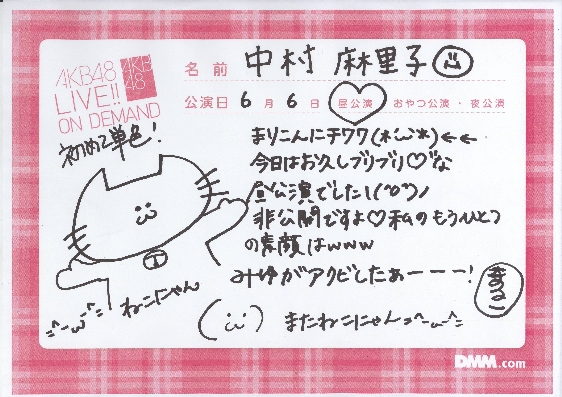 AKB48
LIVE!!
ON DEMAND
AKB
48
名前 中村 麻里子
公演日 6月6日 昼公演 おやつ公演・夜公演
初めて単色!
まりこんにチワワ(*'ω'*)←←
今日はお久しブリブリ♡な
昼公演でした\(^o^)ノ
非公開ですよ♡私のもうひとつ
の素顔はwww
みゆがアクビしたぁーーー!
まりこ
ねこにゃん
またねこにゃんっ^-ω-^=
DMM.com